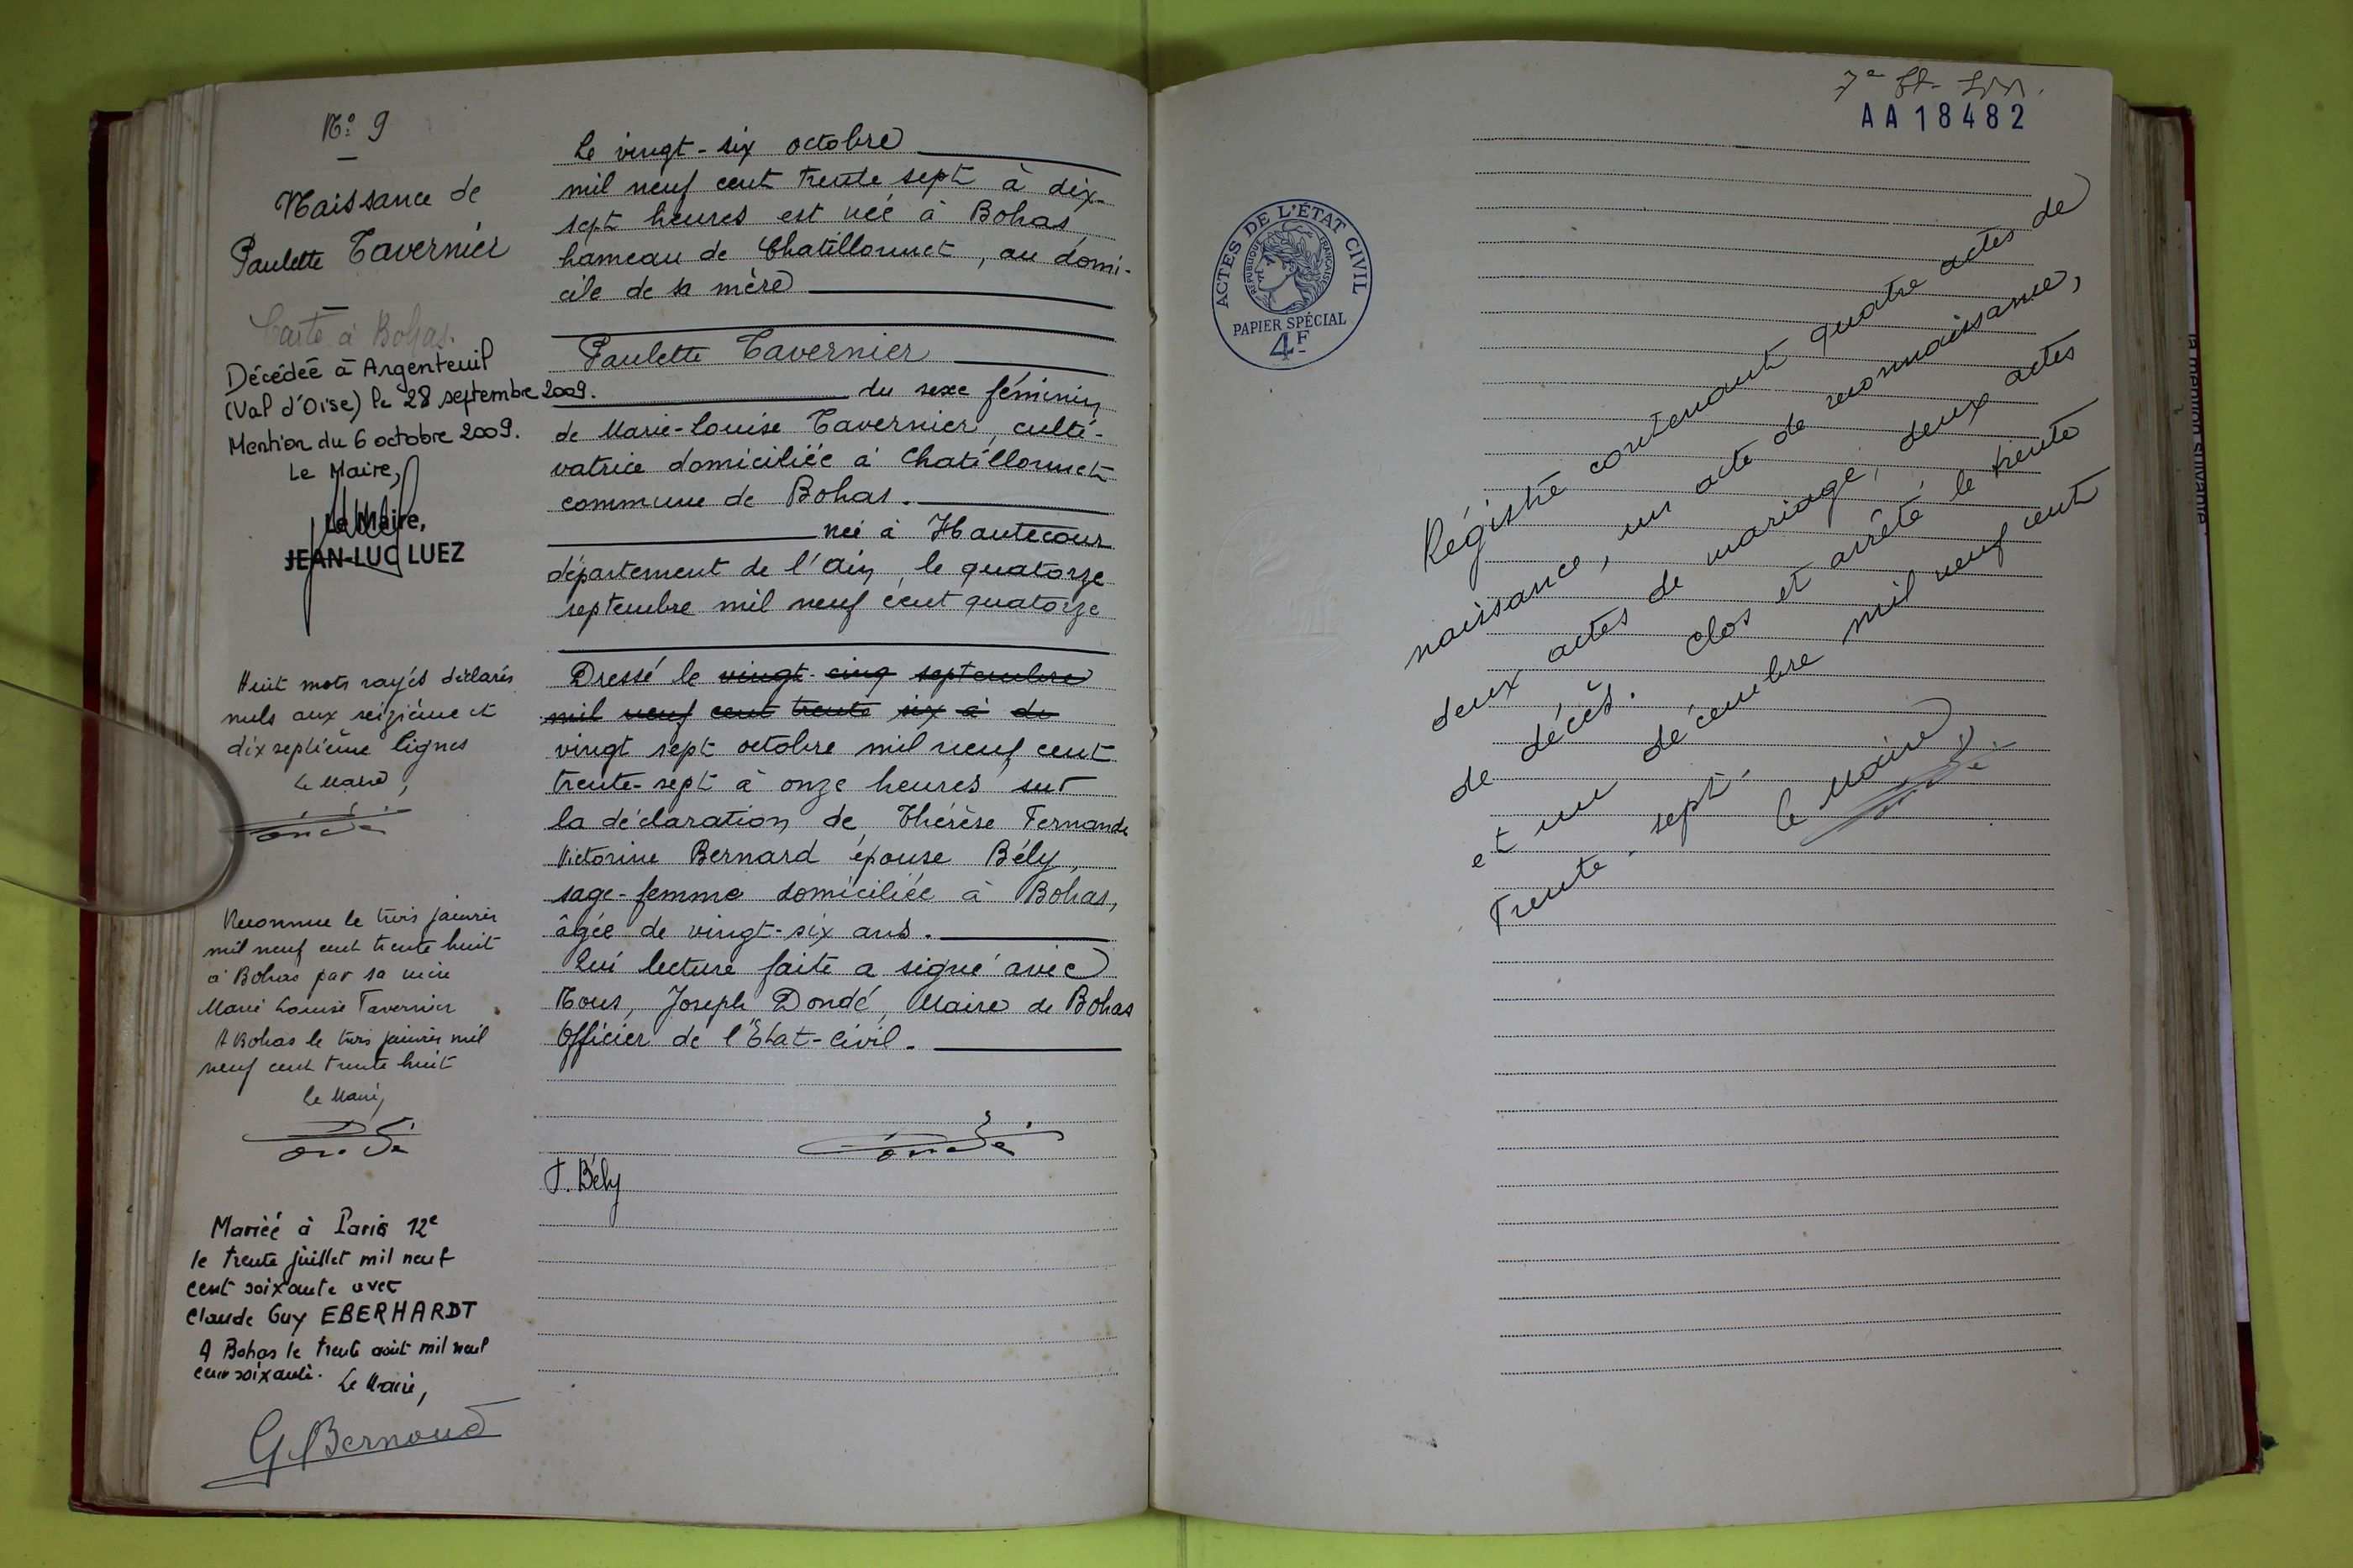 N° 9
Naissance de
Paulette Tavernier
Carte à Bohas.
Décédée à Argenteuil
(Val d'Oise) le 28 septembre 2009.
Mention du 6 octobre 2009.
Le Maire,
Le Maire,
JEAN-LUC LUEZ
Huit mots rayés déclarés
nuls aux seizième et
dix septième lignes
Le Maire,
Dondé
Reconnue le trois janvier
mil neuf cent trente huit
à Bohas par sa mère
Marie Louise Tavernier
A Bohas le trois janvier mil
neuf cent trente huit
Le Maire,
Dondé
Mariée à Paris 12e
le trente juillet mil neuf
cent soixante avec
Claude Guy EBERHARDT
A Bohas le trente août mil neuf
cent soixante. Le Maire,
G Bernoud
Le vingt-six octobre
mil neuf cent trente sept à dix-
sept heures est née à Bohas
hameau de Chatillonnet, au domi-
cile de sa mère
Paulette Tavernier
du sexe féminin
de Marie-Louise Tavernier, culti-
vatrice domiciliée à Chatillonnet
commune de Bohas.
née à Hautecour
département de l'Ain, le quatorze
septembre mil neuf cent quatorze
Dressé le vingt-cinq septembre
mil neuf cent trente six à du
vingt sept octobre mil neuf cent
trente-sept à onze heures sur
la déclaration de Thérèse Fernande
Victorine Bernard épouse Bély,
sage-femme domiciliée à Bohas,
âgée de vingt-six ans.
Qui lecture faite a signé avec
Nous, Joseph Dondé, Maire de Bohas
Officier de l'Etat-Civil.
Dondé
T. Bély
AA18482
ACTES DE L'ÉTAT CIVIL
RÉPUBLIQUE FRANÇAISE
PAPIER SPÉCIAL
4F
Régistre contenant quatre actes de
naissance, un acte de reconnaissance,
deux actes de mariage, deux actes
de décès. Clos et arrêté le trente
et un décembre mil neuf cent
trente-sept.
Le Maire
Dondé
la mention suivante